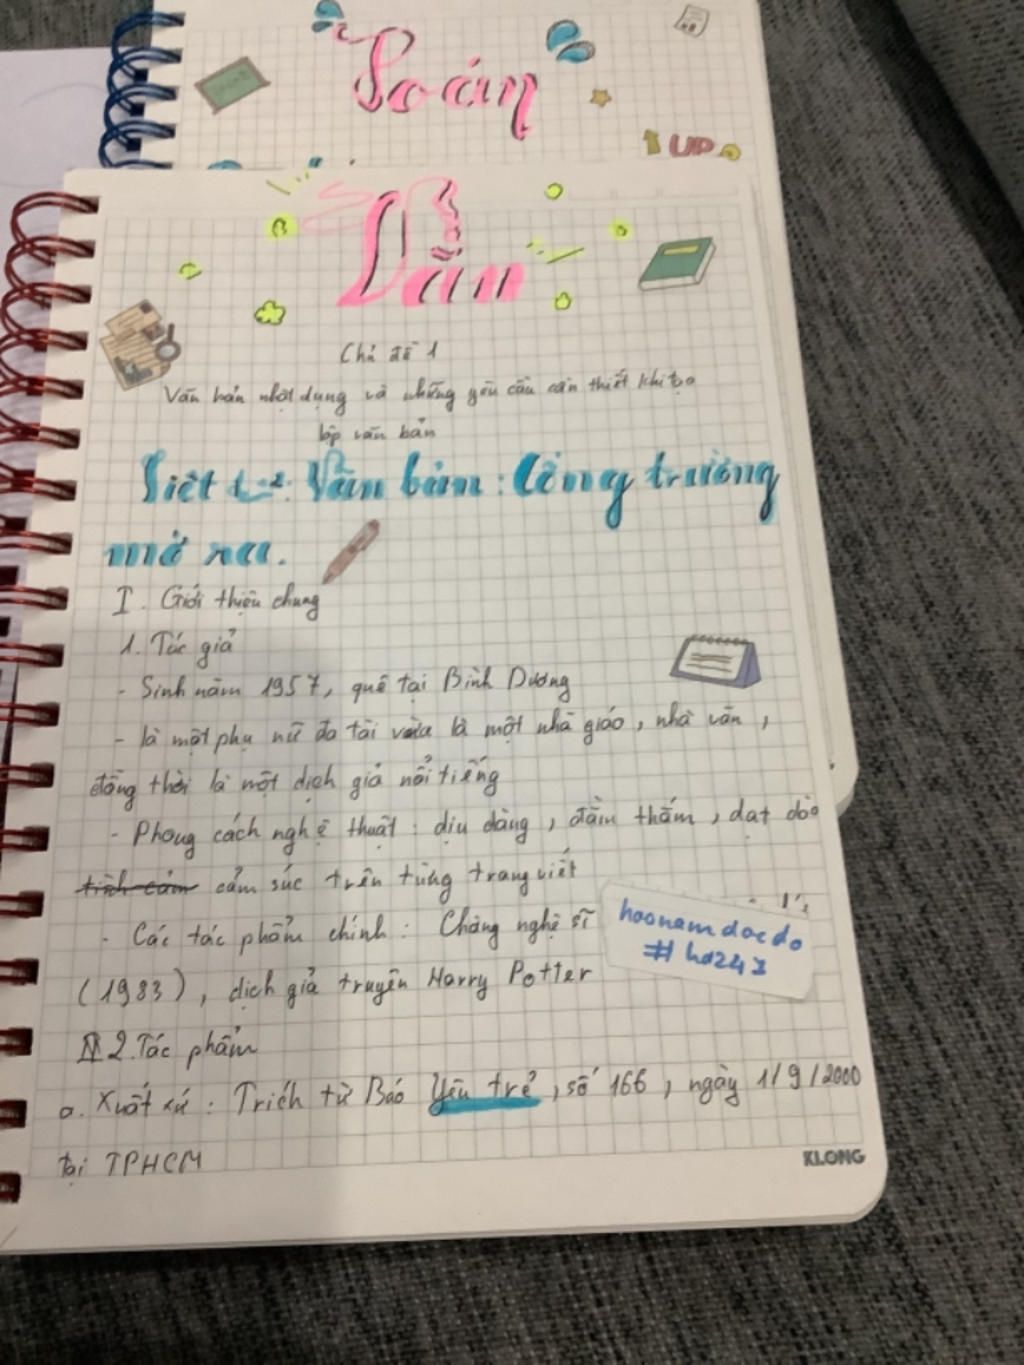 Toán
UP
Văn
Chủ đề 1
Văn bản nhật dụng và những yêu cầu cần thiết khi tạo
lập văn bản
Tiết 1-2: Văn bản: Cổng trường
mở ra.
I. Giới thiệu chung
1. Tác giả
- Sinh năm 1957, quê tại Bình Dương
- là một phụ nữ đa tài vừa là một nhà giáo, nhà văn,
đồng thời là một dịch giả nổi tiếng
- Phong cách nghệ thuật: dịu dàng, đằm thắm, dạt dào
tình cảm cảm súc trên từng trang viết
- Các tác phẩm chính: Chàng nghệ sĩ
(1983), dịch giả truyện Harry Potter
hoonamdocdo
#hd247
II 2. Tác phẩm
a. Xuất xứ: Trích từ Báo Yêu trẻ, số 166, ngày 1/9/2000
tại TPHCM
KLONG